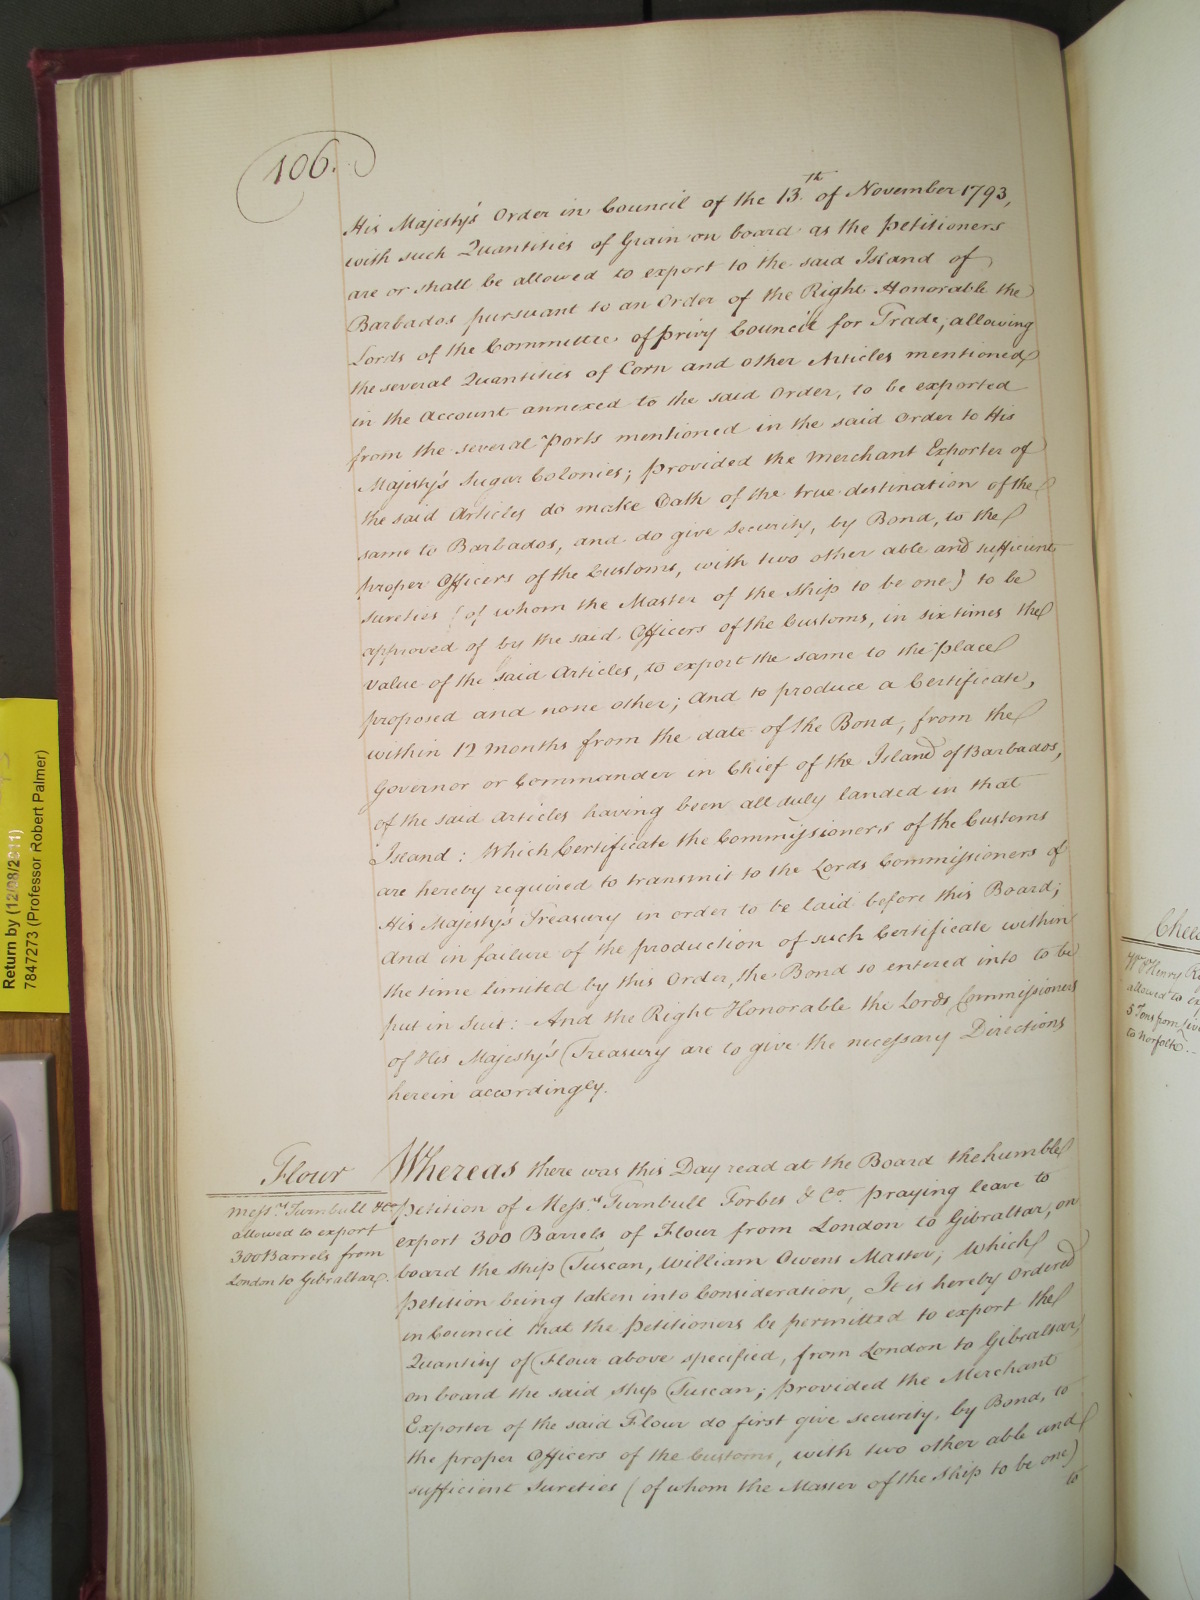 106.
His Majesty's Order in Council of the 13th of November 1793,
with such Quantities of Grain on board as the Petitioners
are or shall be allowed to export to the said Island of
Barbados pursuant to an Order of the Right Honorable the
Lords of the Committee of Privy Council for Trade, allowing
the several Quantities of Corn and other Articles mentioned
in the Account annexed to the said Order, to be exported
from the several Ports mentioned in the said Order to His
Majesty's Sugar Colonies; provided the Merchant Exporter of
the said Articles do make Oath of the true destination of the
same to Barbados, and do give Security, by Bond, to the
proper Officers of the Customs, with two other able and sufficient
Sureties (of whom the Master of the Ship to be one) to be
approved of by the said Officers of the Customs, in six times the
value of the said Articles, to export the same to the Place
proposed and none other; And to produce a Certificate,
within 12 Months from the date of the Bond, from the
Governor or Commander in Chief of the Island of Barbados,
of the said Articles having been all duly landed in that
Island: Which Certificate the Commissioners of the Customs
are hereby required to transmit to the Lords Commissioners of
His Majesty's Treasury in order to be laid before this Board;
And in failure of the production of such Certificate within
the time limited by this Order, the Bond so entered into to be
put in Suit: And the Right Honorable the Lords Commissioners
of His Majesty's Treasury are to give the necessary Directions
herein accordingly.
Flour
Messrs. Turnbull &Co
allowed to export
300 Barrels from
London to Gibraltar.
Whereas there was this Day read at the Board the humble
Petition of Messrs. Turnbull Forbes & Co. praying leave to
export 300 Barrels of Flour from London to Gibraltar, on
board the Ship Tuscan, William Owens Master; Which
Petition being taken into Consideration, It is hereby Ordered
in Council that the Petitioners be permitted to export the
Quantity of Flour above specified, from London to Gibraltar,
on board the said Ship Tuscan; provided the Merchant
Exporter of the said Flour do first give security, by Bond, to
the proper Officers of the Customs, with two other able and
sufficient Sureties (of whom the Master of the Ship to be one)
to
Return by (12/08/2011)
7847273 (Professor Robert Palmer)
Henry
allowed to
5 Tons from
to Norfolk